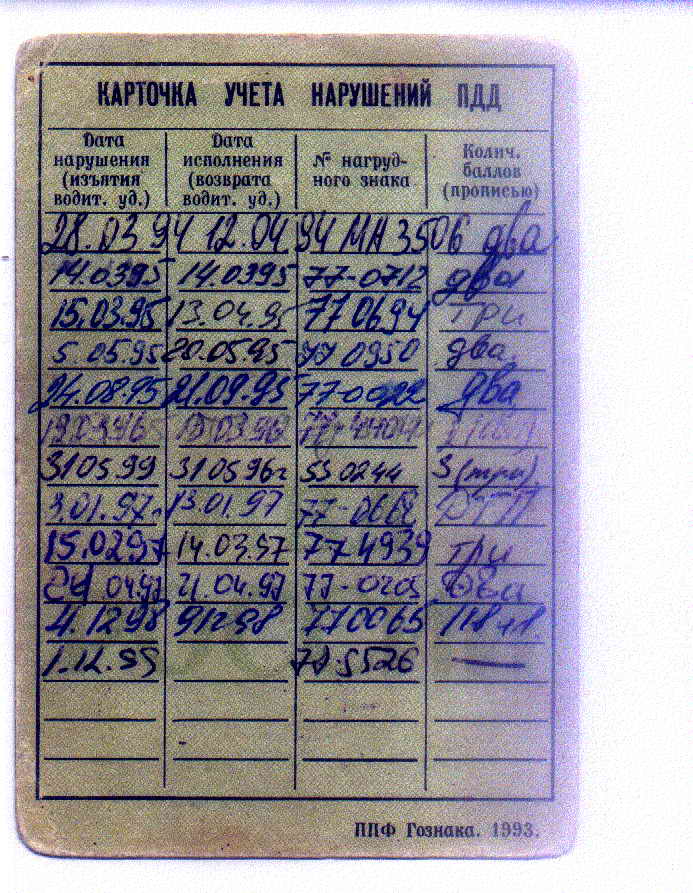 КАРТОЧКА УЧЕТА НАРУШЕНИЙ ПДД
Дата нарушения (изъятия водит. уд.)
Дата исполнения (возврата водит. уд.)
№ нагруд-ного знака
Колич. баллов (прописью)
28.03 94 12.04.94 МА 3506 два
14.0395 14.0395 77-0712 два
15.03.95 13.04.95 770694 три
5.05.95 20.05.95 77 0950 два
24.08.95 21.09.95 77-0022 два
310599 310596г 530244 3 (три)
3.01.97г 13.01.97 77-0668 ДТП
15.0297 14.03.97 774939 три
04.97 21.04.97 два
4.1298 91298 770065
1.12.99 78.5526 —
ППФ Гознака. 1993.